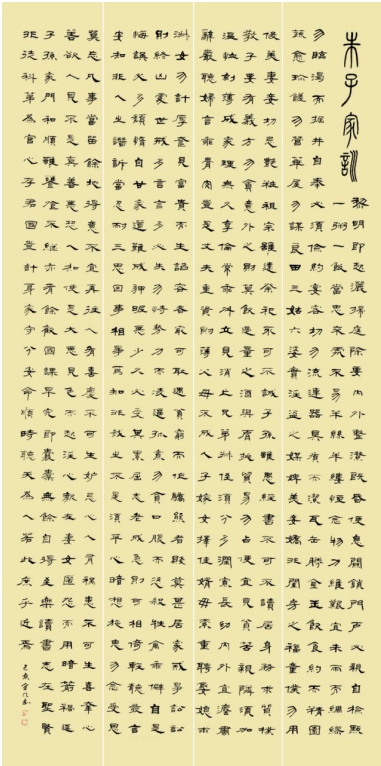 朱子家訓
黎明即起灑掃庭除要內外整潔既昏便息關鎖門戶必親自檢點
一粥一飯當思來處不易半絲半縷恆念物力維艱宜未雨而綢繆
勿臨渴而掘井自奉必須儉約宴客切勿流連器具質而潔瓦缶勝金玉飲食約而精園
蔬愈珍饈勿營華屋勿謀良田三姑六婆實淫盜之媒婢美妾嬌非閨房之福童僕勿用
俊美妻妾切忌艷妝祖宗雖遠祭祀不可不誠子孫雖愚經書不可不讀居身務求質樸
教子要有義方勿貪意外之財勿飲過量之酒與肩挑貿易勿占便宜見貧苦親鄰須加
溫恤刻薄成家理無久享倫常乖舛立見消亡兄弟叔姪須分多潤寡長幼內外宜法肅
辭嚴聽婦言乖骨肉豈是丈夫重資財薄父母不成人子嫁女擇佳婿毋索重聘娶媳求
淑女勿計厚奩見富貴而生諂容者最可恥遇貧窮而作驕態者賤莫甚居家戒爭訟訟
則終凶處世戒多言言多必失勿恃勢力而凌逼孤寡勿貪口腹而恣殺牲禽乖僻自是
悔誤必多頹惰自甘家道難成狎昵惡少久必受其累屈志老成急則可相倚輕聽發言
安知非人之譖訴當忍耐三思因事相爭焉知非我之不是須平心暗想施惠勿念受恩
莫忘凡事當留餘地得意不宜再往人有喜慶不可生妒忌心人有禍患不可生喜幸心
善欲人見不是真善惡恐人知便是大惡見色而起淫心報在妻女匿怨而用暗箭禍延
子孫家門和順雖饔飧不繼亦有餘歡國課早完即囊橐無餘自得至樂讀書志在聖賢
非徒科第為官心存君國豈計身家守分安命順時聽天為人若此庶乎近焉